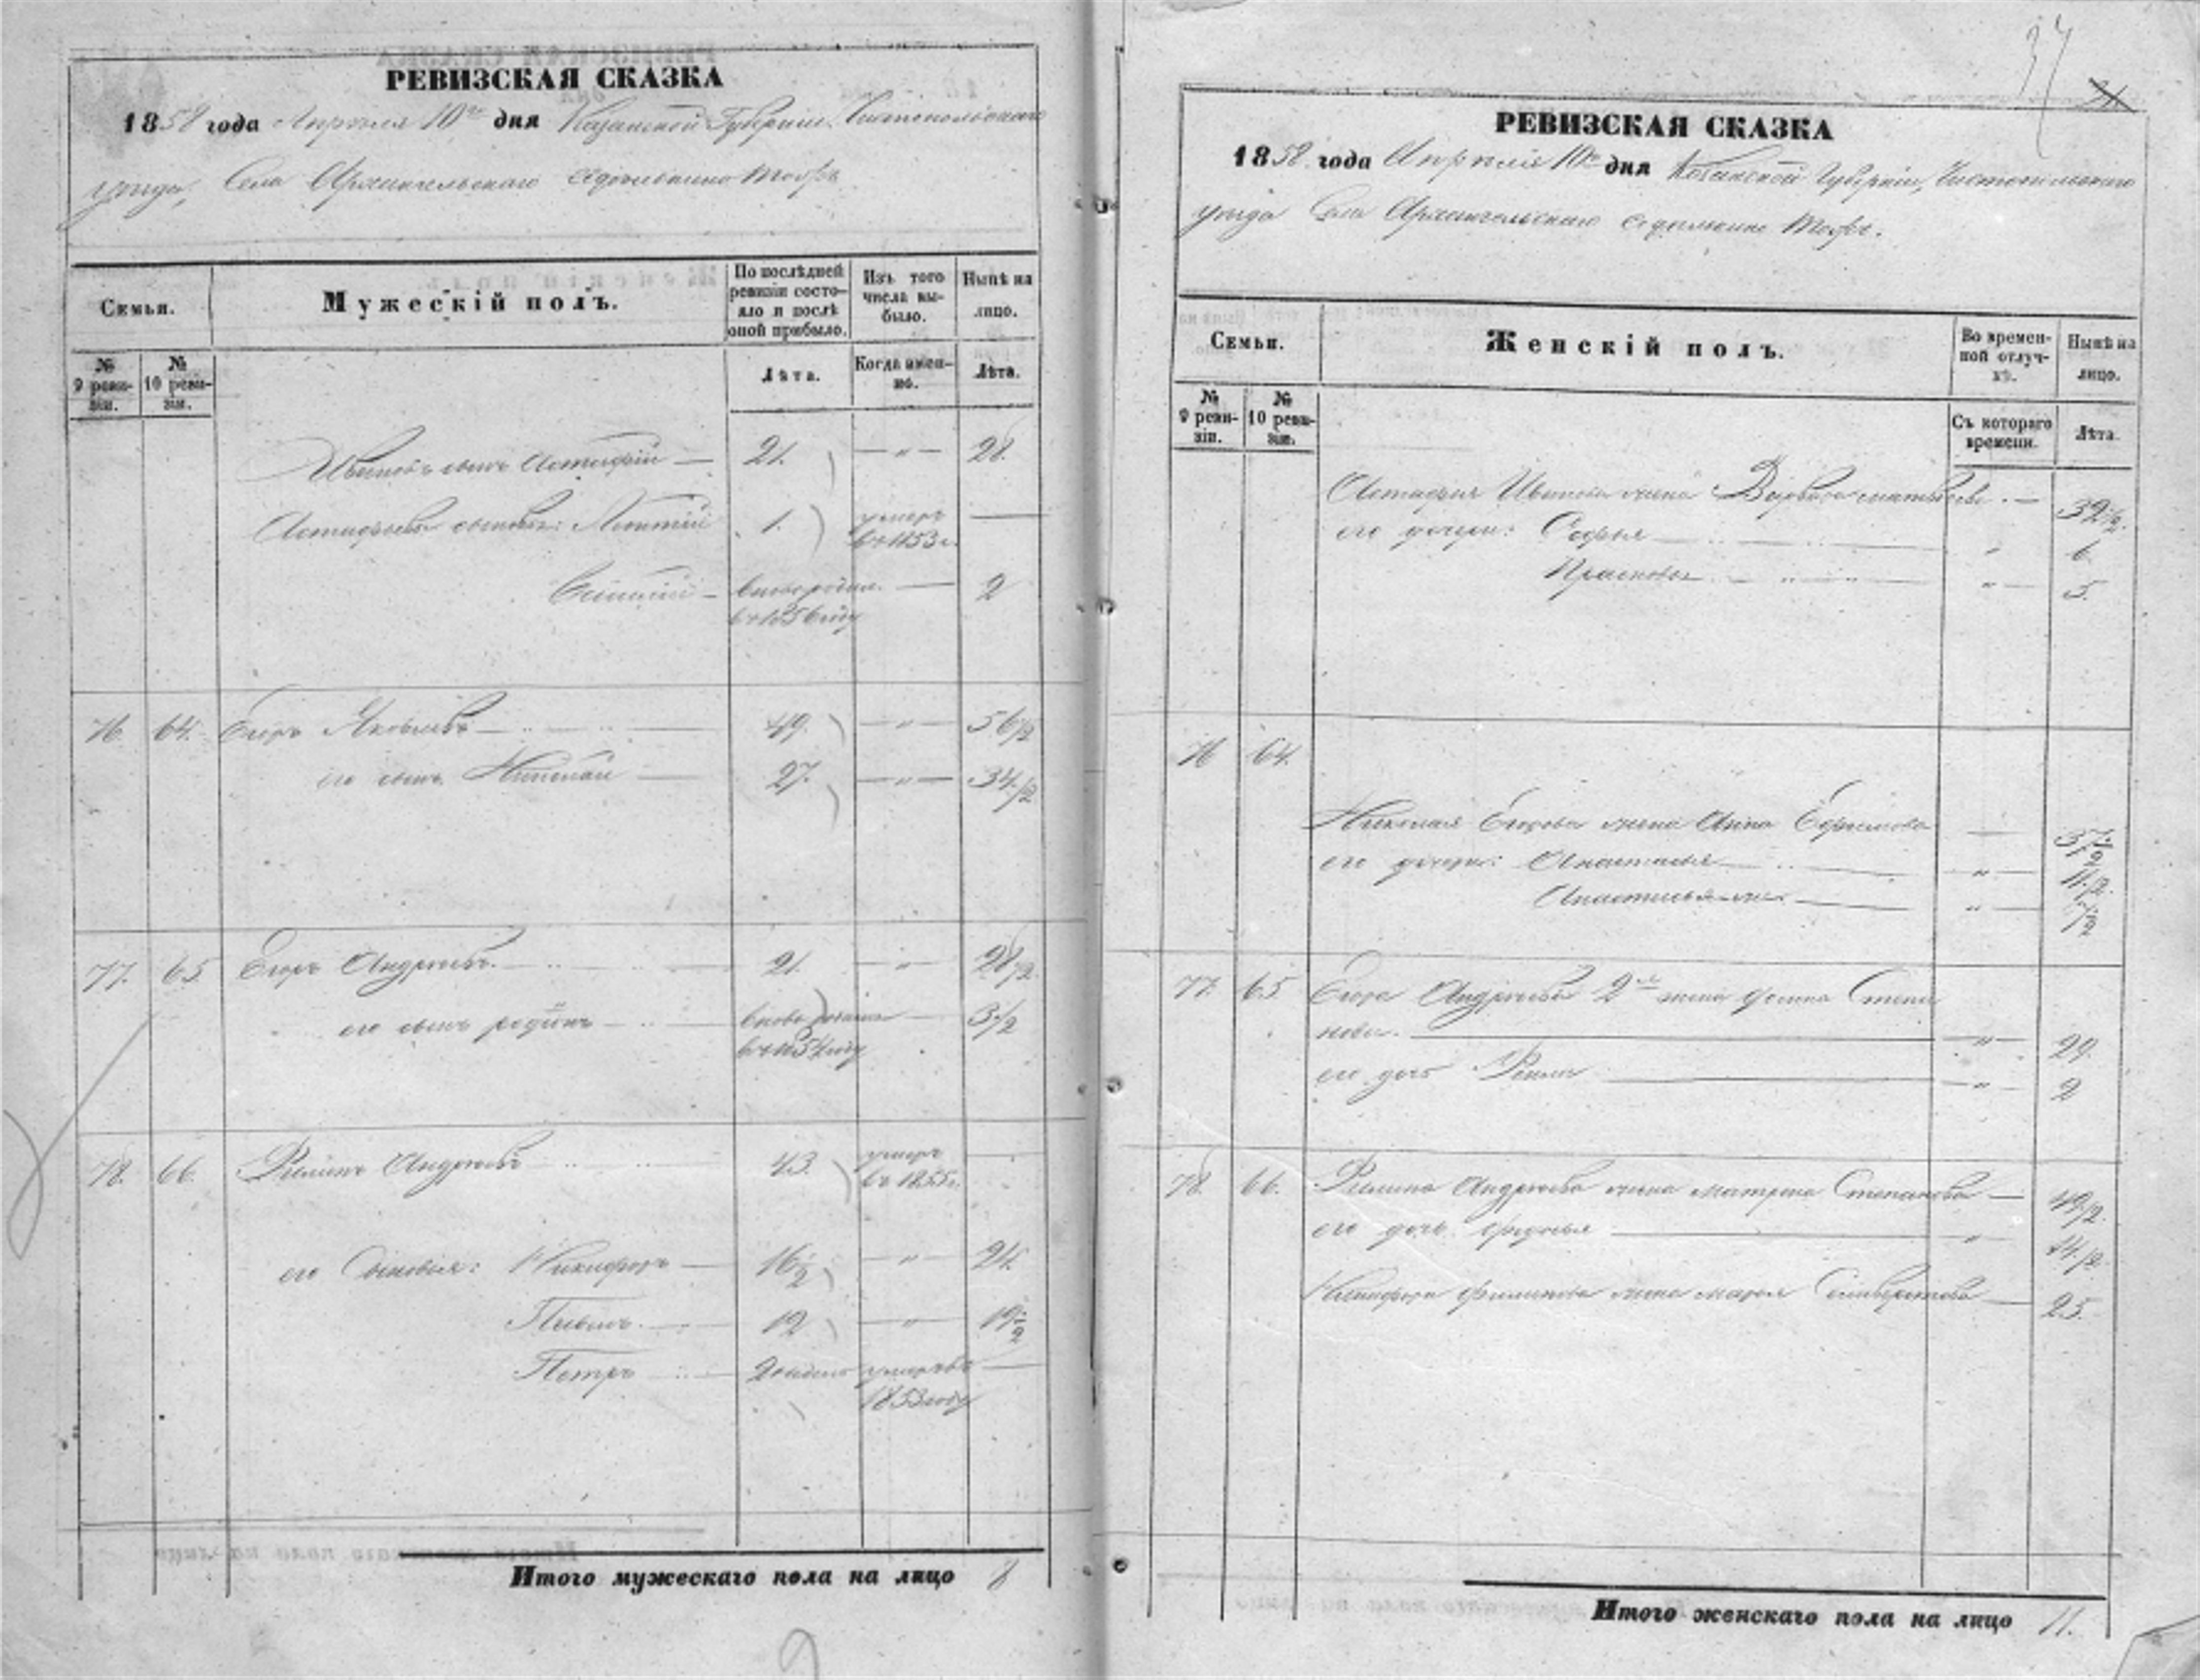 РЕВИЗСКАЯ СКАЗКА
1858 года Апрѣля 10го дня Казанской Губерніи Чистопольскаго
уѣзда, Села Архангельскаго
Семьи.
Мужескій полъ.
По послѣдней ревизіи состояло и послѣ оной прибыло.
Изъ того числа выбыло.
Нынѣ на лицо.
№ 9 ревизіи.
№ 10 ревизіи.
Лѣта.
Когда именно.
Лѣта.
Ивановъ сынъ Астафій — 21. — „ — 28.
Астафьевы сыновья: 1. умеръ въ 1853 г. —
вновь рожден. въ 1856 году — 2
76. 64. Егоръ Яковлевъ — 49. — „ — 56 1/2
его сынъ Николай — 27. — „ — 34 1/2
77. 65 Егоръ Андреевъ. — 21. — „ — 28 1/2
его сынъ — вновь рожден въ 1854 году — 3 1/2
78. 66. Филипъ Андреевъ 43. умеръ въ 1855 г.
его Сыновья: Никифоръ — 16 1/2 — „ — 24.
Павелъ. — 12 — „ — 19 1/2
Петръ — 2 недель умеръ въ —
1853 году
Итого мужескаго пола на лицо 8
37
РЕВИЗСКАЯ СКАЗКА
1858 года Апрѣля 10го дня Казанской Губерніи, Чистопольскаго
уѣзда Села Архангельскаго
Семьи.
Женскій полъ.
Во временной отлучкѣ.
Нынѣ на лицо.
№ 9 ревизіи.
№ 10 ревизіи.
Съ котораго времени.
Лѣта.
Астафія Иванова жена Варвара — 32 1/2.
его дочери: Софья — „ 6
Прасковья — „ — 5.
76 64.
Николая Егорова жена Анна Ефимова — 37 1/2
его дочери: Анастасья — „ — 11 1/2.
Анастасья — „ — 7 1/2
77. 65 Егора Андреева 2я жена Степа
нова. — „ — 29.
его дочь — „ — 2
78. 66. Филипа Андреева жена матрена Степанова — 49 1/2.
его дочь — „ 14 1/2.
Никифора Филипова жена марья — 25.
Итого женскаго пола на лицо 11.